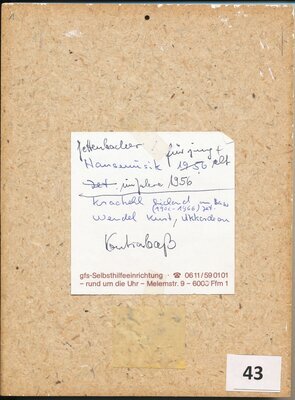 1
Jettenbacher für jung +
Hausmusik 1950 alt
im Jahre 1956
Krachell Richard
(1900-1966)
Wendel Kunt, Akkordeon
Kontrabaß
gfs-Selbsthilfeeinrichtung · ☎ 0611/590101
– rund um die Uhr – Melemstr. 9 – 6000 Ffm 1
43